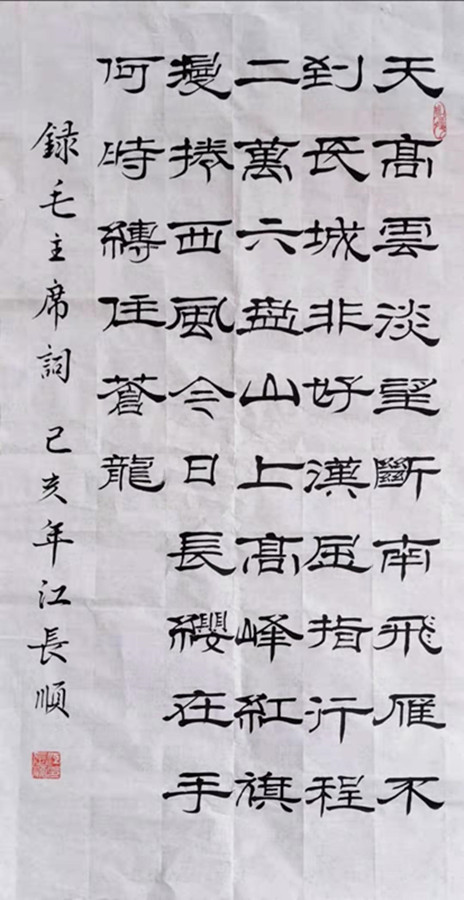 天髙雲淡望斷南飛雁不
到長城非好漢屈指行程
二萬六盘山上髙峰紅旗
漫捲西風今日長纓在手
何時縛住蒼龍
録毛主席詞 己亥年江長順